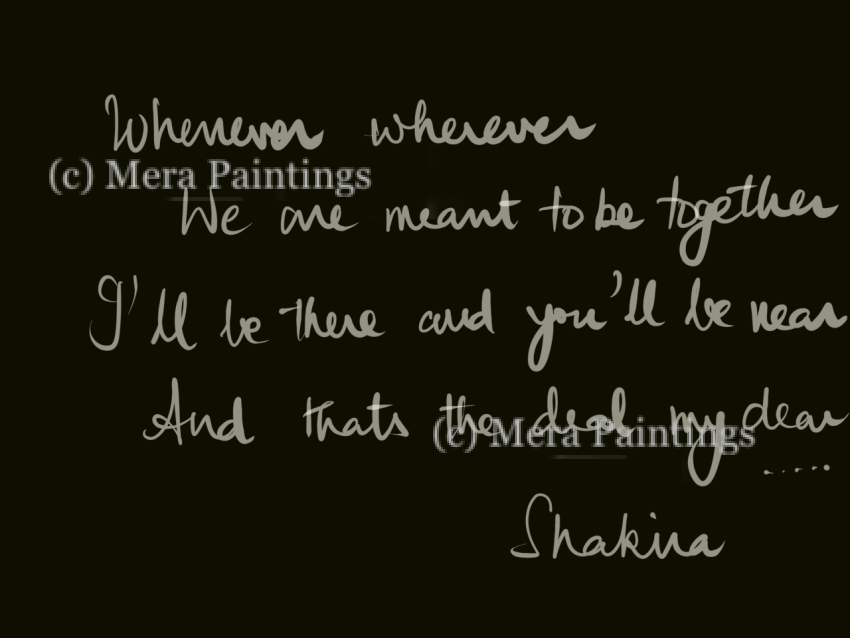 Whenever wherever
(c) Mera Paintings
We are meant to be together
I'll be there and you'll be near
And thats the deal my dear
(c) Mera Paintings
.....
Shakira